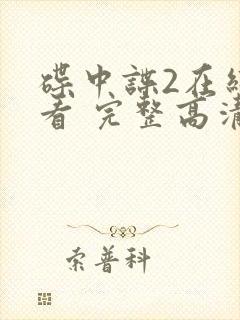 碟中諜2在線
看 完整高清
索普科